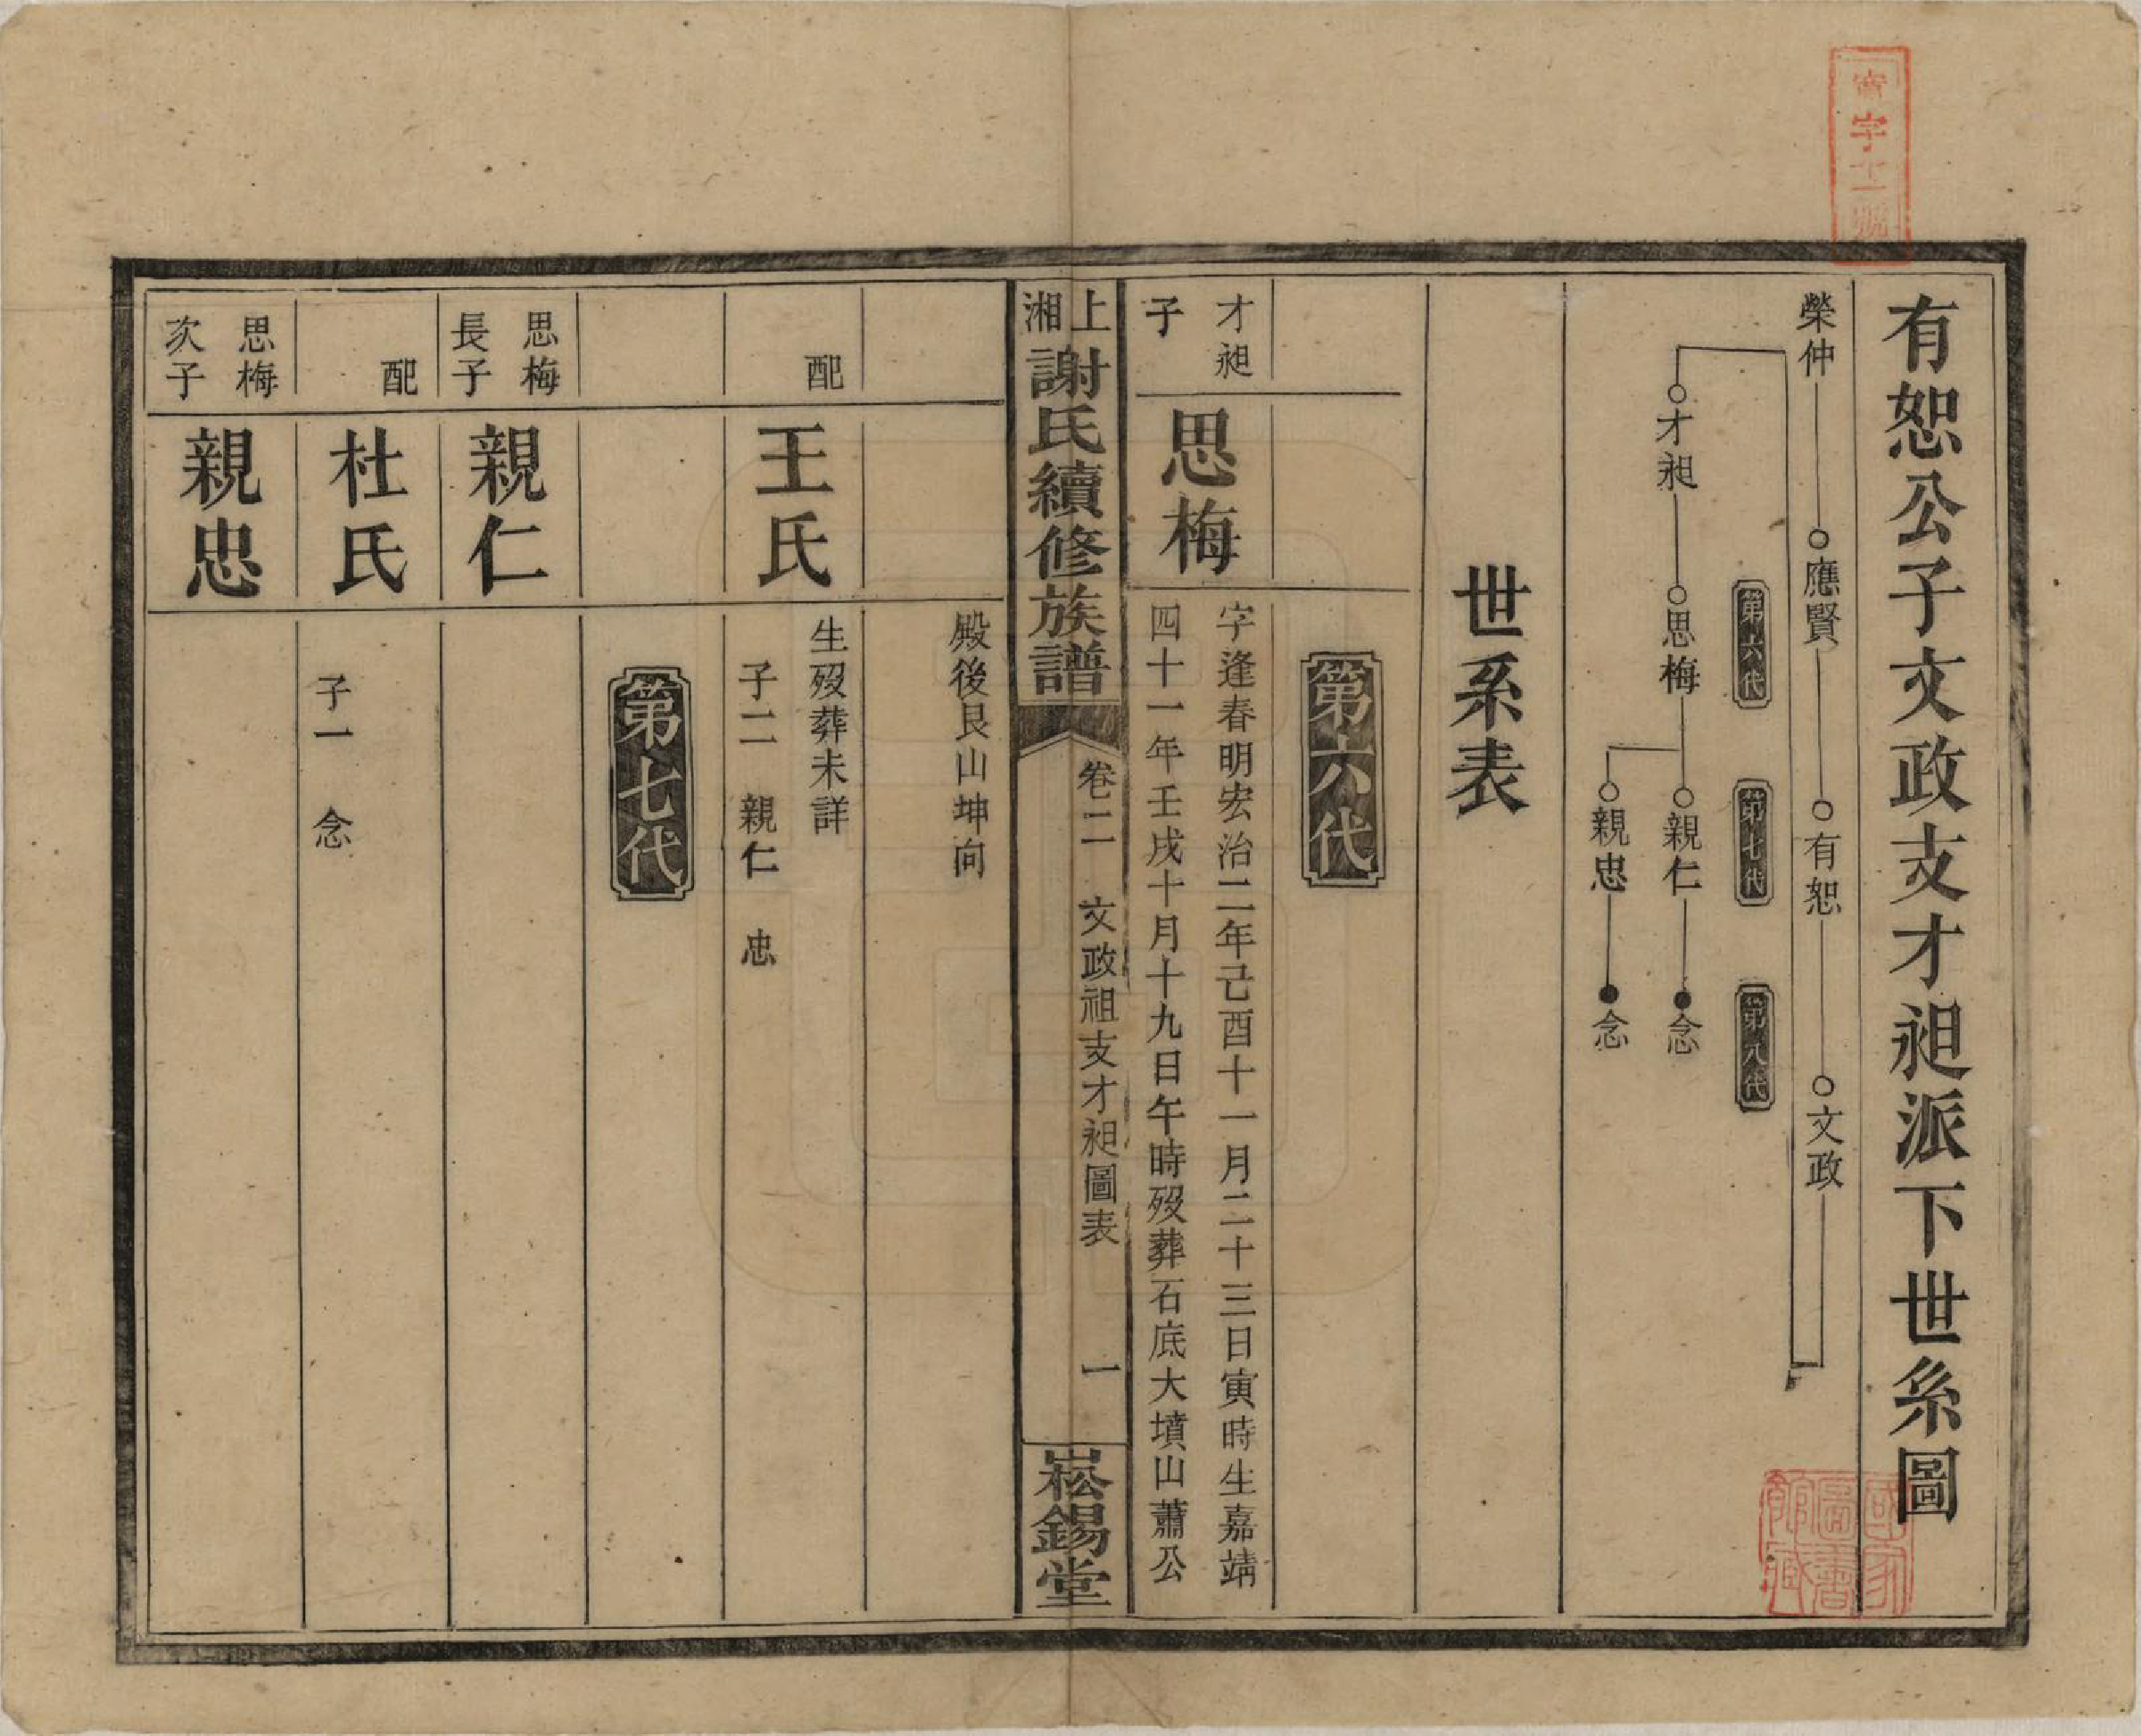 有恕公子文政支才昶派下世系圖
榮仲 應賢 有恕 文政
第六代 第七代 第八代
才昶 思梅 親仁 念
親忠 念
世系表
第六代
才昶
子
思梅
字逢春明宏治二年己酉十一月二十三日寅時生嘉靖
四十一年壬戌十月十九日午時歿葬石底大墳山蕭公
上湘謝氏續修族譜
卷二 文政祖支才昶圖表 一
崧錫堂
殿後艮山坤向
配
王氏
生歿葬未詳
子二 親仁 忠
第七代
思梅
長子
親仁
配
杜氏
子一 念
思梅
次子
親忠
字十一號
國家圖書館藏